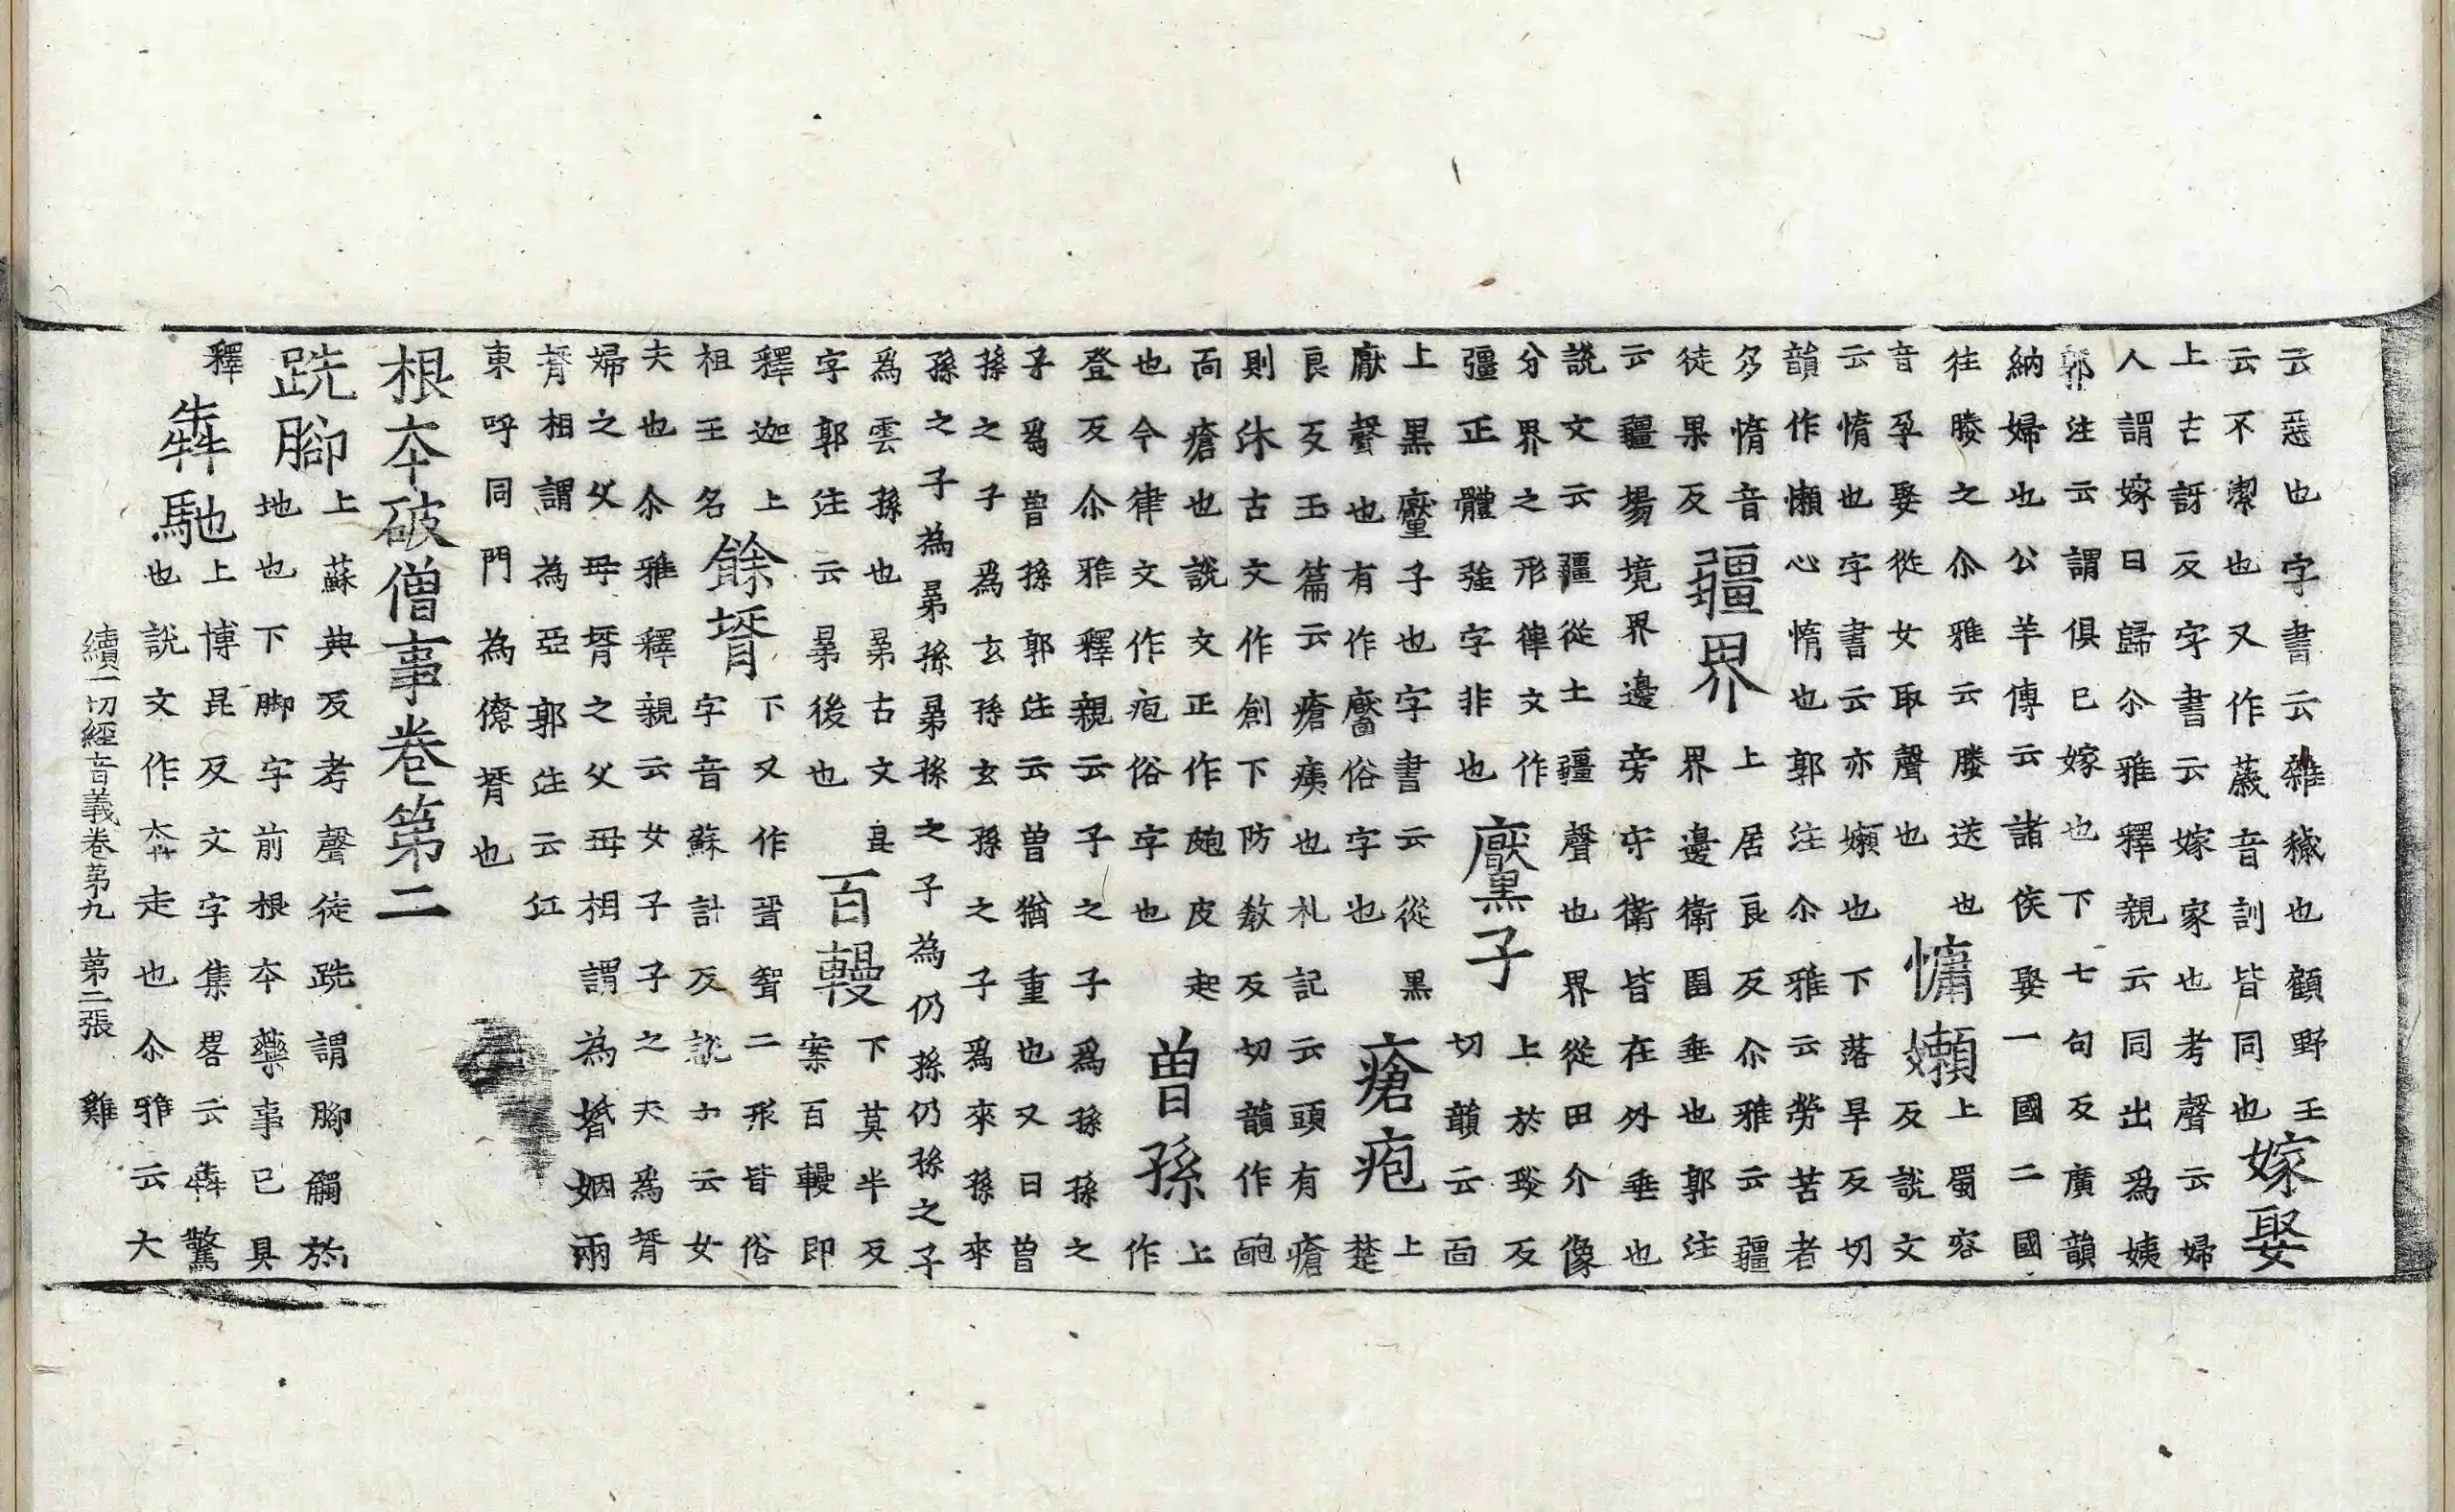 云惡也字書云雜穢也顧野王
云不潔也又作薉音訓皆同也嫁娶
上古訝反字書云嫁家也考聲云婦
人謂嫁曰歸尒雅釋親云同出爲姨
郭注云謂俱已嫁也下七句反廣韻
納婦也公羊傳云諸侯娶一國二國
往媵之尒雅云媵送也慵嬾上蜀容
音孕娶從女取聲也反說文
云惰也字書云亦嬾也下落旱反切
韻作懶心惰也郭注尒雅云勞苦者
多惰音疆界上居良反尒雅云疆
徒果反界邊衛圉垂也郭注
云疆場境界邊旁守衛皆在外垂也
說文云疆從土疆聲也界從田介像
分界之形律文作黶子上於琰反
彊正體強字非也切韻云面
上黑黶子也字書云從黑瘡疱上
厭聲也有作靨俗字也楚
良反玉篇云瘡痍也礼記云頭有瘡
則沐古文作創下防教反切韻作皰
面瘡也說文正作皰皮起曾孫上
也今律文作疱俗字也作
登反尒雅釋親云子之子爲孫孫之
子爲曾孫郭注云曾猶重也又曰曾
孫之子爲玄孫玄孫之子爲來孫來
孫之子為晜孫晜孫之子為仍孫仍孫之子
爲雲孫也晜古文昆百鞔下莫半反
字郭注云晜後也案百鞔即
釋迦上餘壻下又作聟二形皆俗
祖王名字音蘇計反說文云女
夫也尒雅釋親云女子子之夫爲壻
婦之父母壻之父母相謂為婚姻兩
壻相謂為亞郭注云江
東呼同門為僚壻也
根本破僧事卷第二
跣腳上蘇典反考聲徒跣謂腳觸於
地也下脚字前根本藥事已具
釋犇馳上博昆反文字集畧云犇驚
也說文作走也尒雅云大
續一切經音義卷第九　第二張　雞